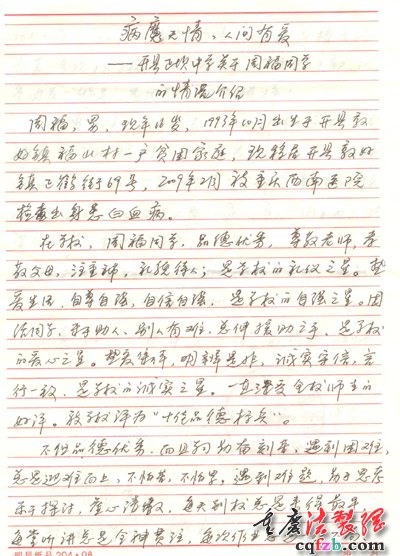 病魔无情，人间有爱
——开县三汇中学关于周福同学
的情况介绍
周福，男，现年16岁，1993年10月出生于开县敦
好镇福山村一户贫困家庭，现移居开县敦好
镇正街69号，2009年2月被重庆西南医院
检查出身患白血病。
在学校，周福同学，品德优秀，尊敬老师，孝
敬父母，注重，礼貌待人；是学校的礼仪之星。热
爱生活，自尊自强，自信自律，是学校的自强之星。团
结同学，乐于助人，别人有难，总伸援助之手，是学校
的爱心之星。热爱集体，明辨是非，诚实守信，言
行一致，是学校的诚实之星。一直深受全校师生的
好评。被学校评为“十佳品德标兵”。
不但品德优秀，而且学习勤奋刻苦，遇到困难，
总是迎难而上，不怕苦，不怕累。遇到难题，勤于思考
乐于探讨，虚心请教，每天到校总是来得最早，
每堂听讲总是全神贯注，每次作业
重庆法制网
cqfzb.net